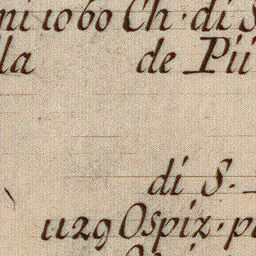 ni 1060 Ch. di S
la de Pii
di S.
1129 Ospiz. p